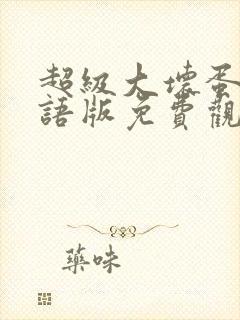 超級大壞蛋
語版免費觀
藥味